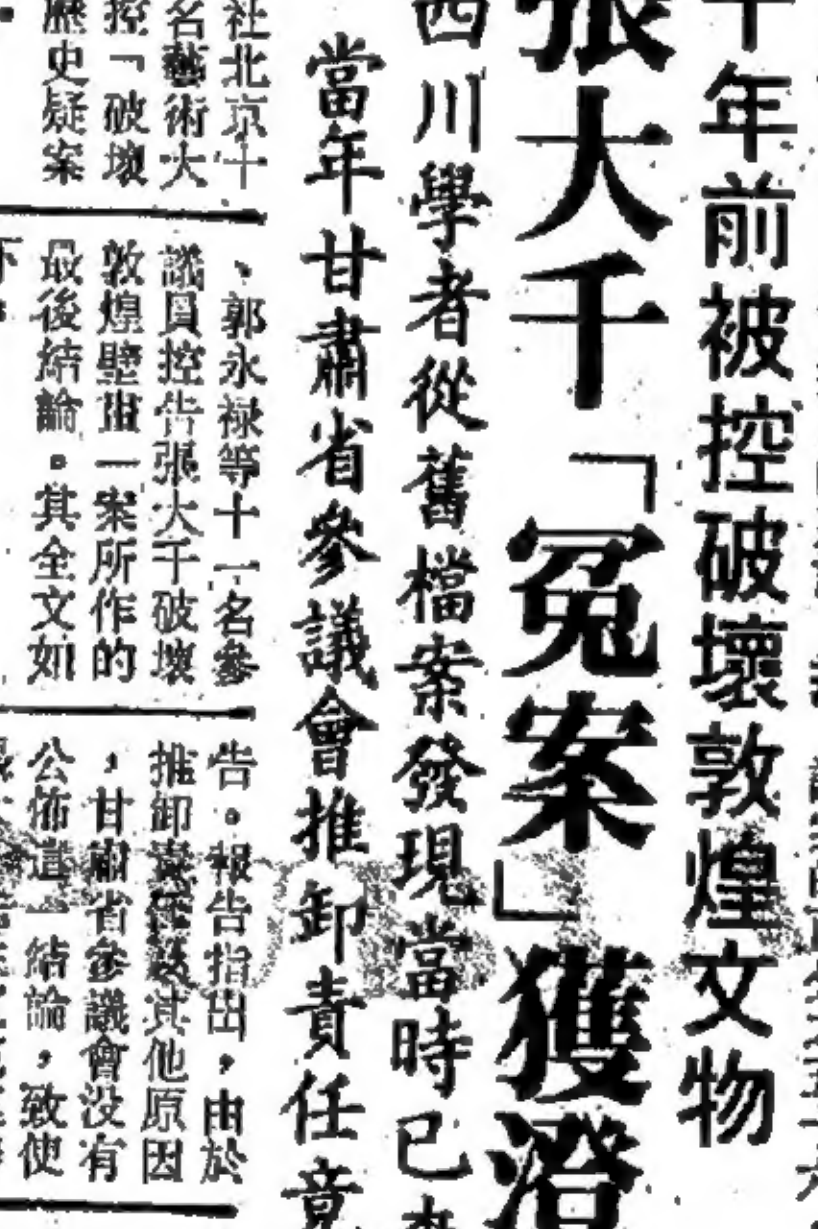 十年前被控破壞敦煌文物
張大千「冤案」獲澄
四川學者從舊檔案發現當時已
當年甘肅省參議會推卸責任竟
社北京十
名藝術大
控「破壞
歷史疑案
、郭永禄等十一名參
議員控告張大千破壞
敦煌壁畫一案所作的
最後結論。其全文如
下。
告。報告指出,由於
推卸責任及其他原因
,甘肅省參議會没有
公佈這一結論,致使